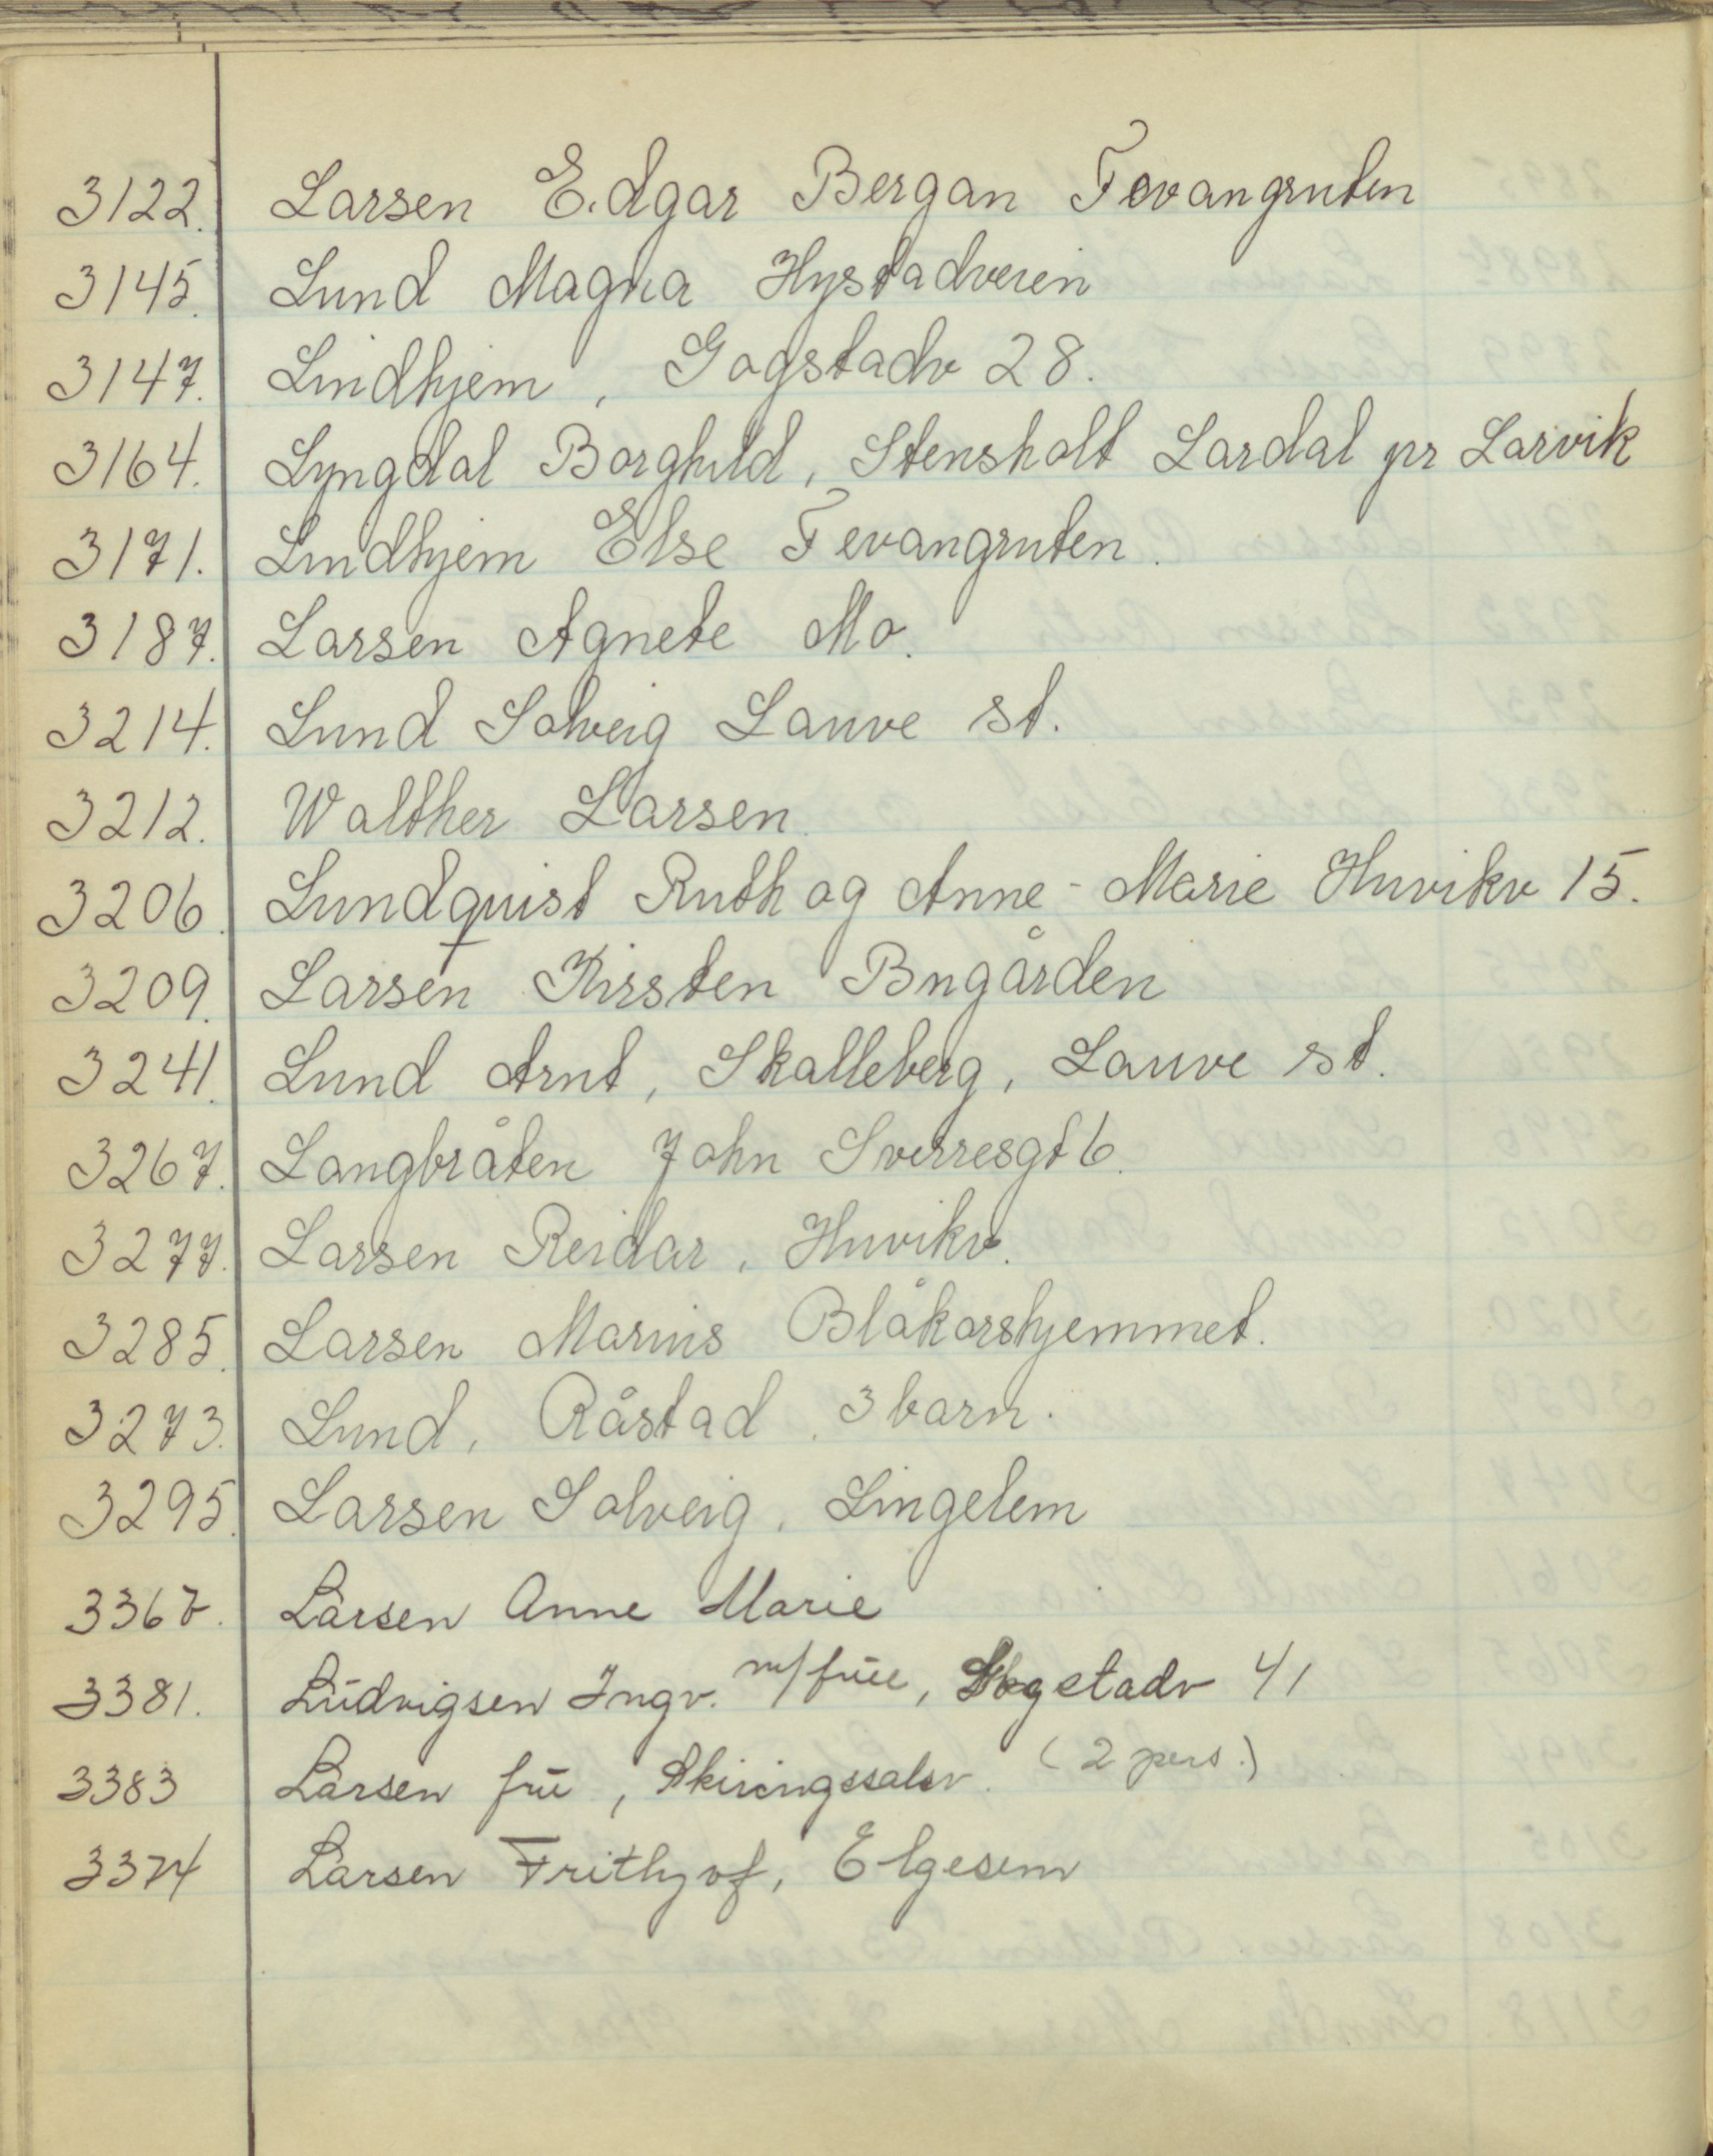 3122. Larsen Edgar Bergan Fevangruten
3145. Lund Magna Hystadveien
3147. Lindhjem, Gogstadv 28.
3164. Lyngdal Borghild, Stensholt Lardal pr Larvik
3171. Lindhjem Else Fevangruten.
3187. Larsen Agnete Mo.
3214. Lund Solveig Lauve st.
3212. Walther Larsen
3206. Lundquist Ruth og Anne-Marie Huvikv 15.
3209. Larsen Kirsten Bugården
3241. Lund Arnt, Skalleberg, Lauve st.
3267. Langbråten John Sverresgt 6.
3277. Larsen Reidar, Huvikv.
3285. Larsen Marius Blåkorshjemmet.
3273. Lund, Råstad, 3 barn.
3295. Larsen Solveig, Lingelem
3367. Larsen Anne Marie
3381. Ludvigsen Ingv. m/frue, Gogstadv 41
3383 Larsen fru, Skiringssalsv. (2 pers.)
3374 Larsen Frithjof, Elgesem